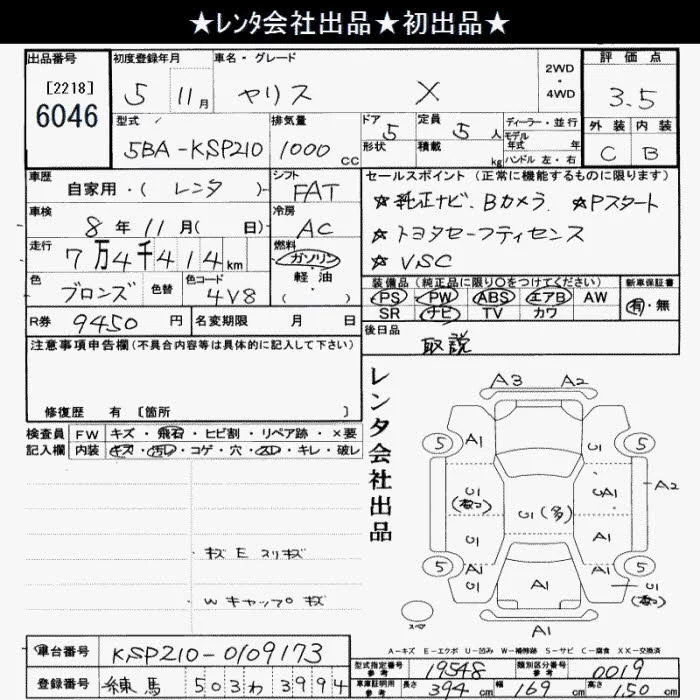 ★レンタ会社出品★初出品★
出品番号
[2218]
6046
初度登録年月
5 11月
車名・グレード
ヤリス X
2WD・4WD
評価点
3.5
外装 内装
C B
型式
5BA-KSP210
排気量
1000 CC
ドア 5
形状
定員 5 人
積載 kg
ディーラー・並行
モデル年式 年
ハンドル 左・右
車歴
自家用・(レンタ)
シフト
FAT
車検
8年11月( 日)
冷房
AC
走行
7万4千414km
燃料
ガソリン
軽油
( )
色
ブロンズ
色替
色コード
4V8
R券 9450 円
名変期限 月 日
セールスポイント (正常に機能するものに限ります)
☆純正ナビ.Bカメラ ☆Pスタート
☆トヨタセーフティセンス
☆VSC
装備品 (純正品に限り○をつけてください)
PS PW ABS エアB AW
SR ナビ TV カワ
新車保証書
有・無
後日品
取説
注意事項申告欄(不具合内容等は具体的に記入して下さい)
修復歴 有 [箇所 ]
検査員記入欄
FW キズ・飛石・ヒビ割・リペア跡・×要
内装 キズ・汚レ・コゲ・穴・スレ・キレ・破レ
キズ E スリキズ
W キャップ キズ
レンタ会社出品
A3 A2
5 A1 U1 5
U1 U1 (多) UA1 A2
U1 A1
5 A1 A1 A1 5
U1 U1
A1
スペア
A-キズ E-エクボ U-凹み W-補修跡 S-サビ C-腐食 XX-交換済
車台番号 KSP210-0109173
登録番号 練馬 503 わ 3994
型式指定番号 参考 19548
類別区分番号 参考 0019
車庫証明用 参考 長さ 394 cm 幅 169 cm 高さ 150 cm